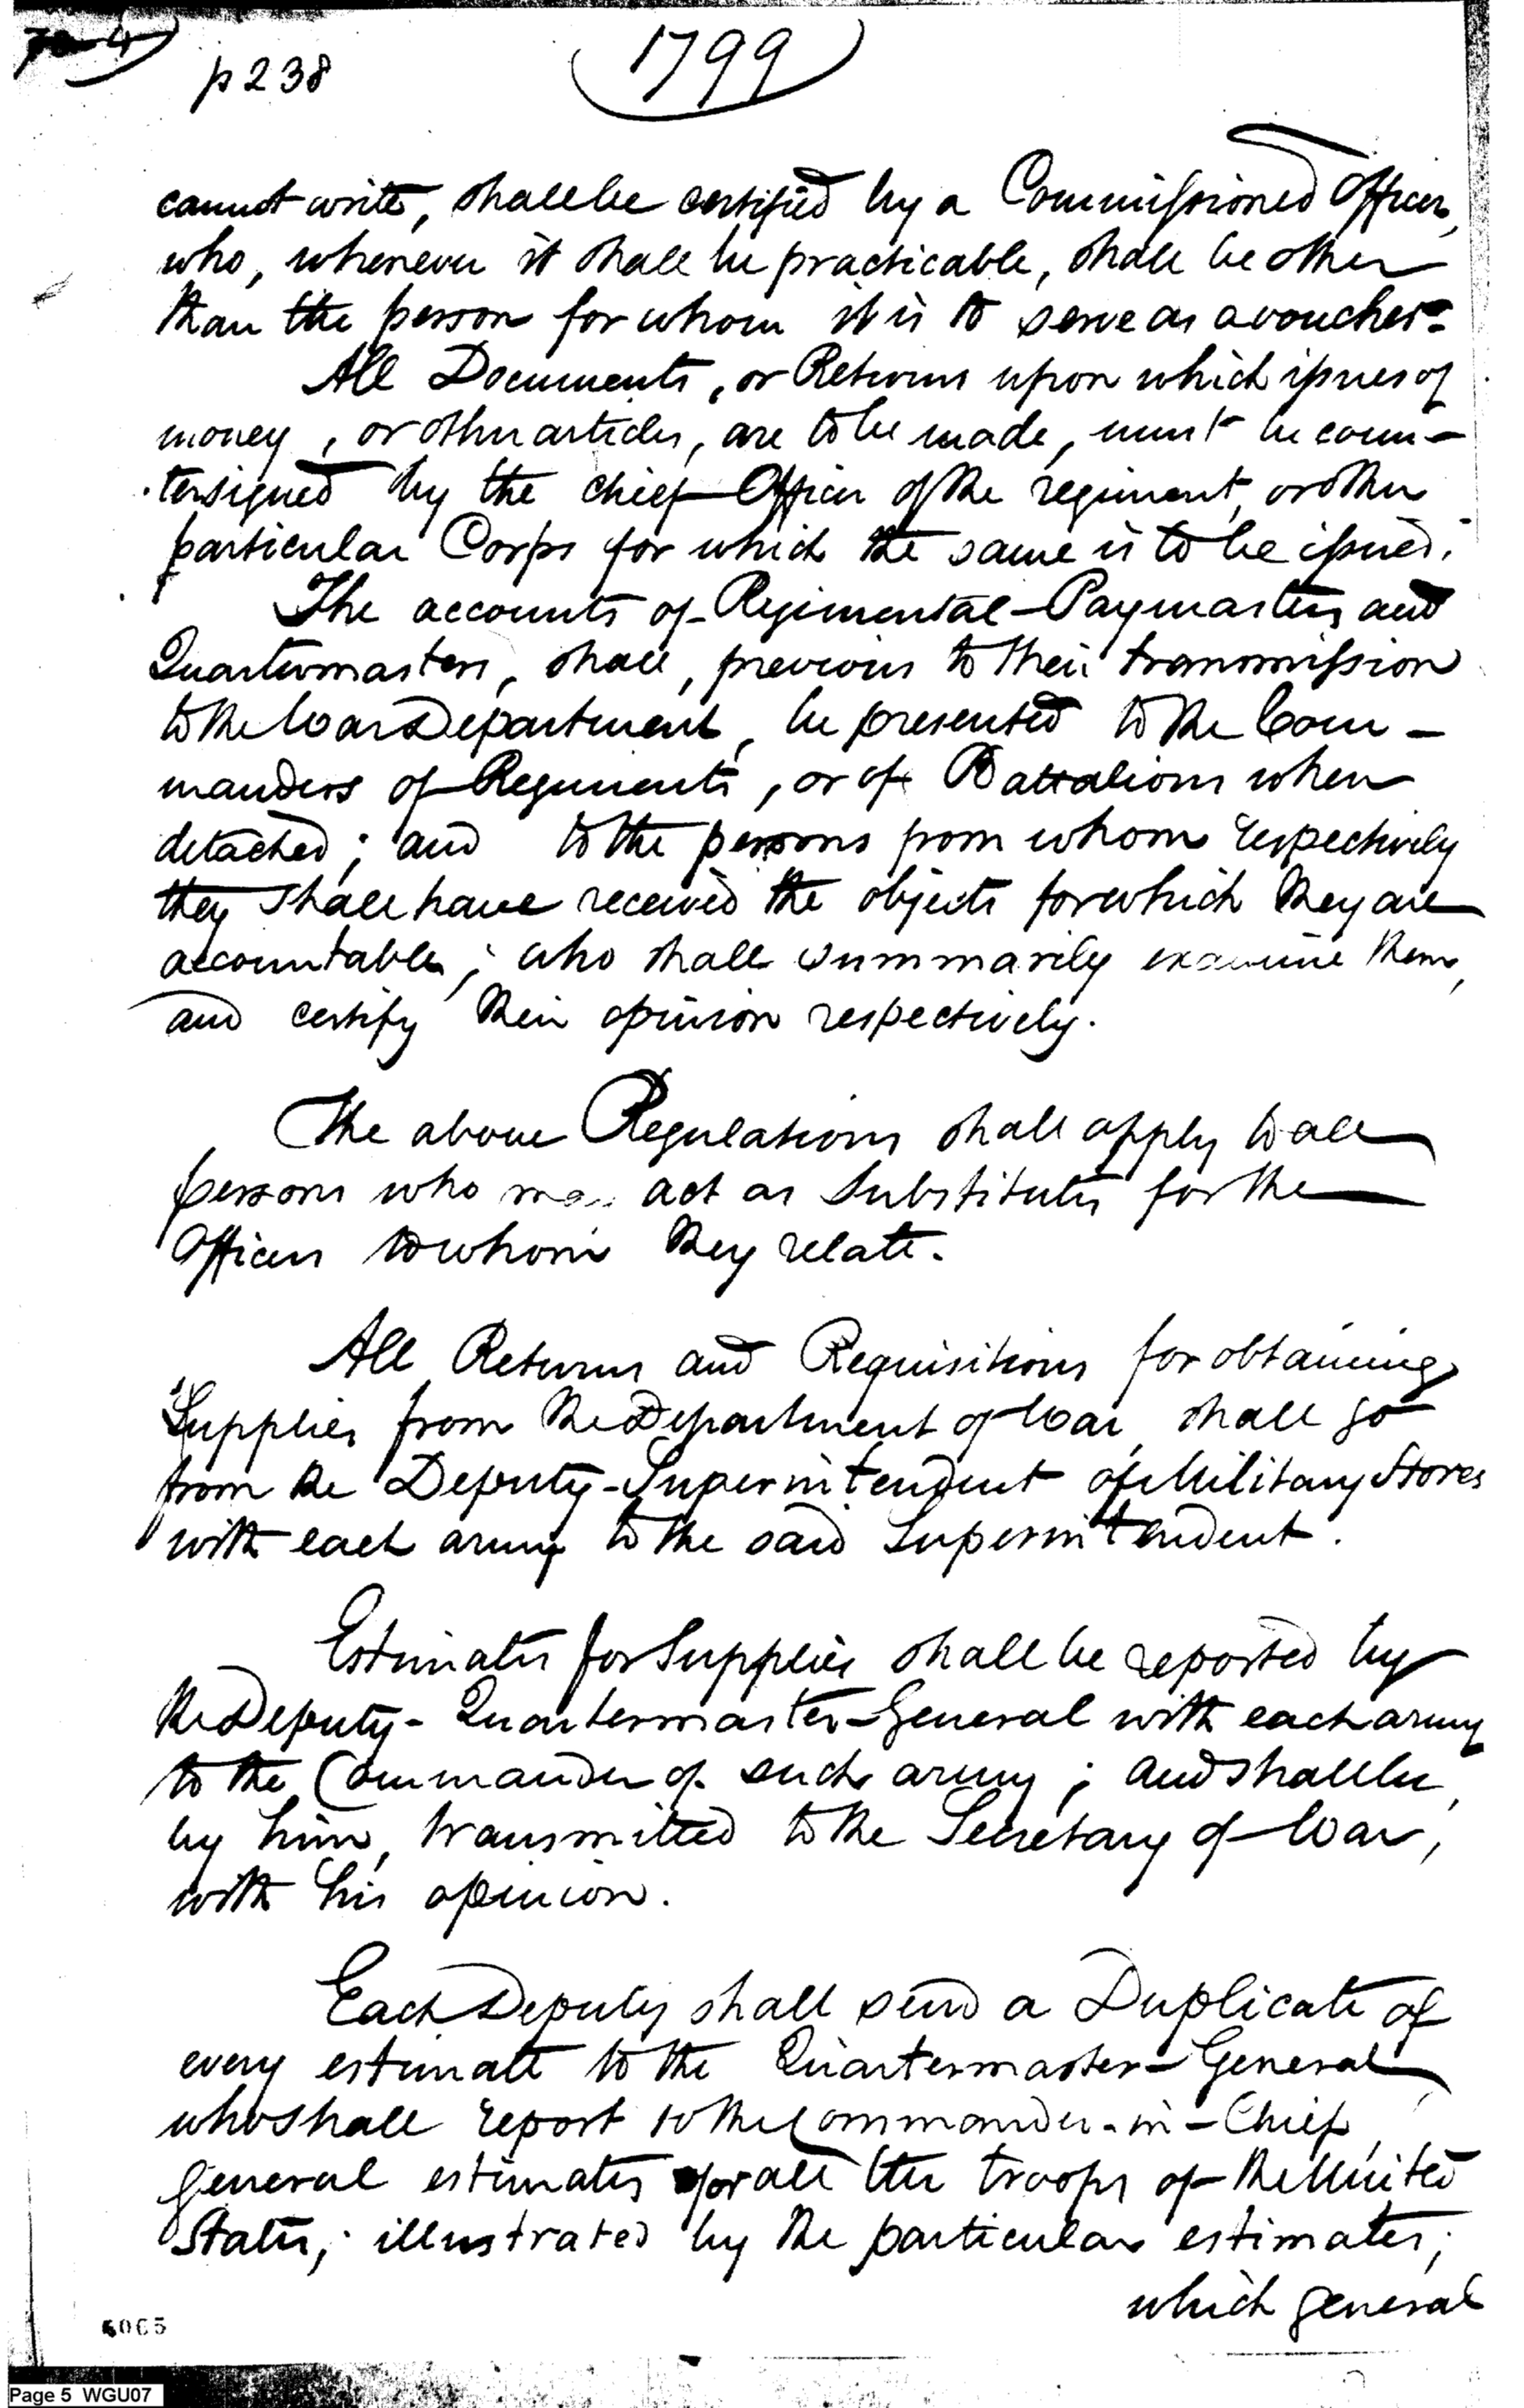 p 238
1799
cannot write, shall be certified by a Commissioned Officer,
who, whenever it shall be practicable, shall be other
than the person for whom it is to serve as a voucher.
All Documents, or Returns upon which issues of
money, or other articles, are to be made, must be coun-
tersigned by the chief Officer of the regiment, or other
particular Corps for which the same is to be issued.
The accounts of Regimental-Paymasters and
Quartermasters, shall, previous to their transmission
to the War Department, be presented to the Com-
manders of Regiments, or of Battalions when
detached; and to the persons from whom respectively
they shall have received the objects for which they are
accountable; who shall summarily examine them,
and certify their opinion respectively.
The above Regulations shall apply to all
persons who may act as Substitutes for the
Officers to whom they relate.
All Returns and Requisitions for obtaining
Supplies from the Department of War, shall go
from the Deputy-Superintendent of Military Stores
with each army to the said Superintendent.
Estimates for Supplies shall be reported by
the Deputy-Quartermaster-General with each army
to the Commander of such army; and shall be,
by him, transmitted to the Secretary of War,
with his opinion.
Each Deputy shall send a Duplicate of
every estimate to the Quartermaster-General,
who shall report to the Commander-in-Chief,
general estimates for all the troops of the United
States; illustrated by the particular estimates;
which general
6065
Page 5 WGU07